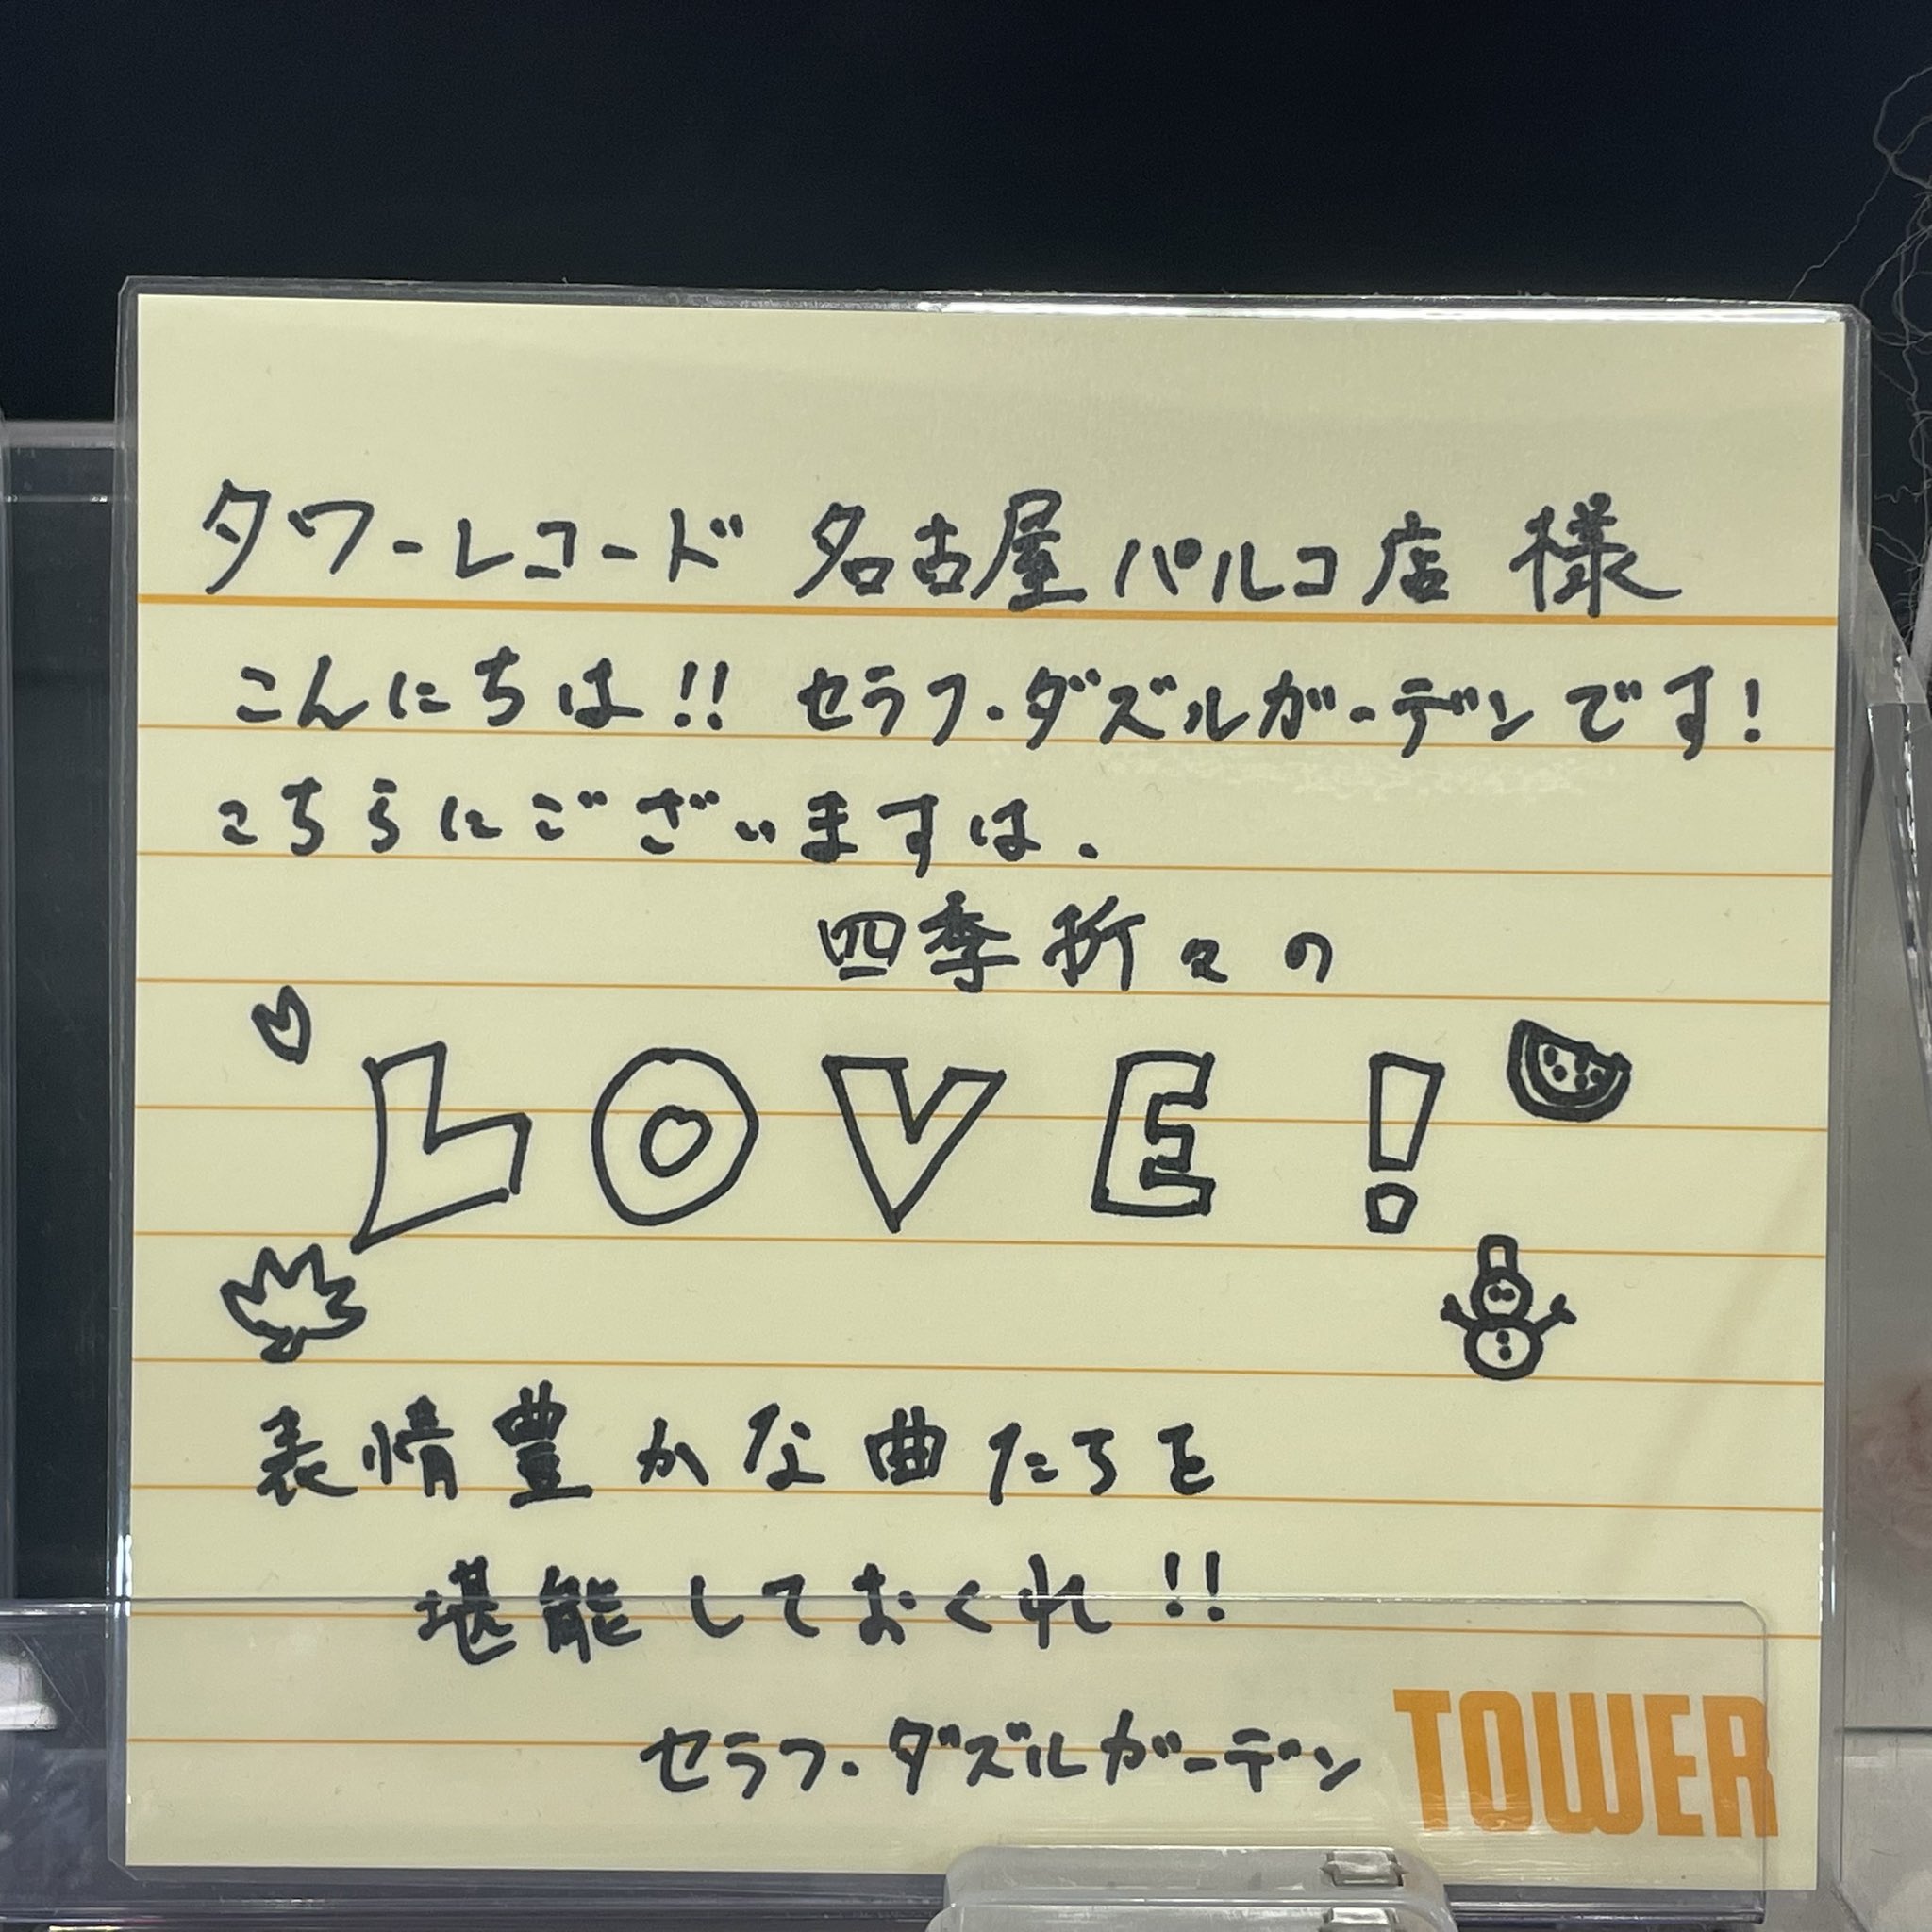 タワーレコード 名古屋パルコ店 様
こんにちは!! セラフ・ダズルガーデンです!
こちらにございますは、
四季折々の
LOVE!
表情豊かな曲たちを
堪能しておくれ!!
セラフ・ダズルガーデン
TOWER